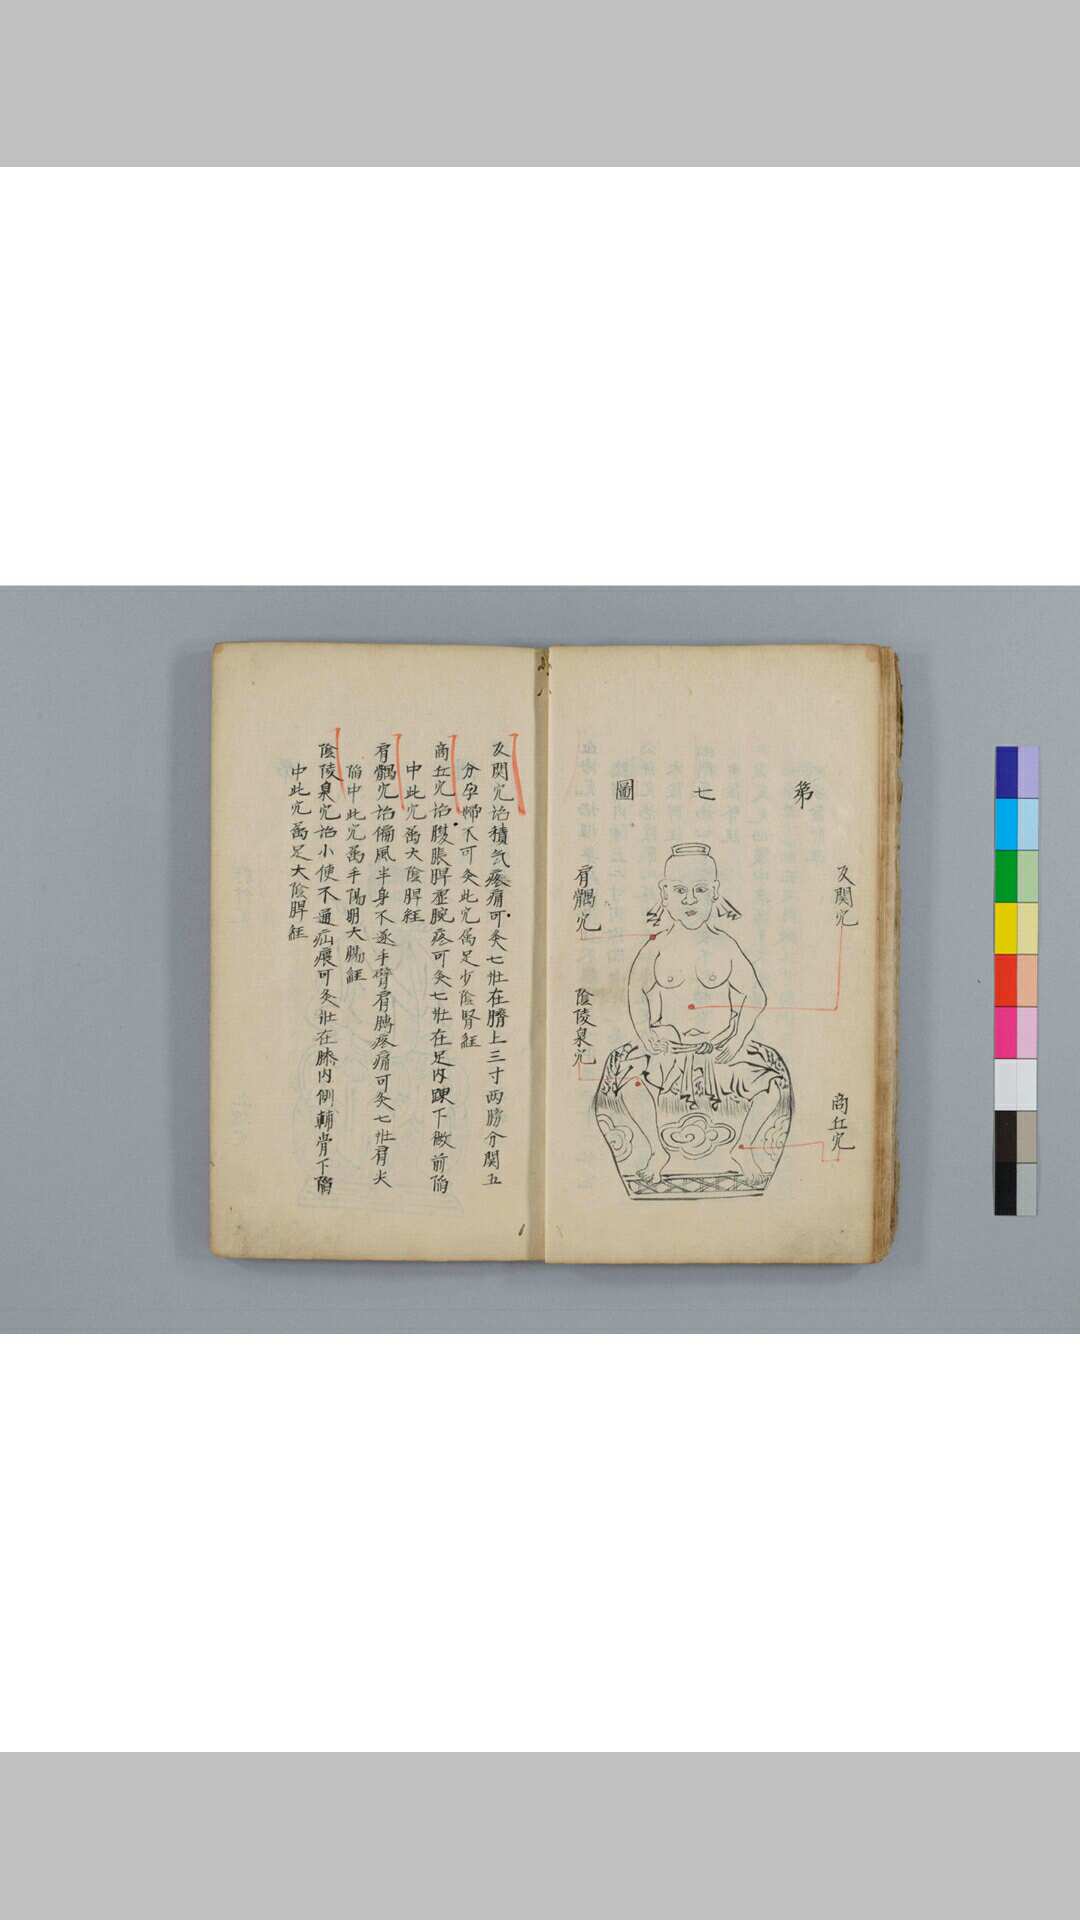 第七圖
及関穴
商丘穴
肩髃穴
陰陵泉穴
及関穴治積气疼痛可灸七壮在臍上三寸两膀分関五
分孕婦不可灸此穴属足少陰腎経
商丘穴治腹脹脾虚腕疼可灸七壮在足内踝下微前陥
中此穴属大陰脾経
肩髃穴治偏風半身不遂手臂肩膊疼痛可灸七壮肩尖
陥中此穴属手陽明大腸経
陰陵泉穴治小便不通疝㿉可灸壮在膝内側輔骨下陥
中此穴属足大陰脾経